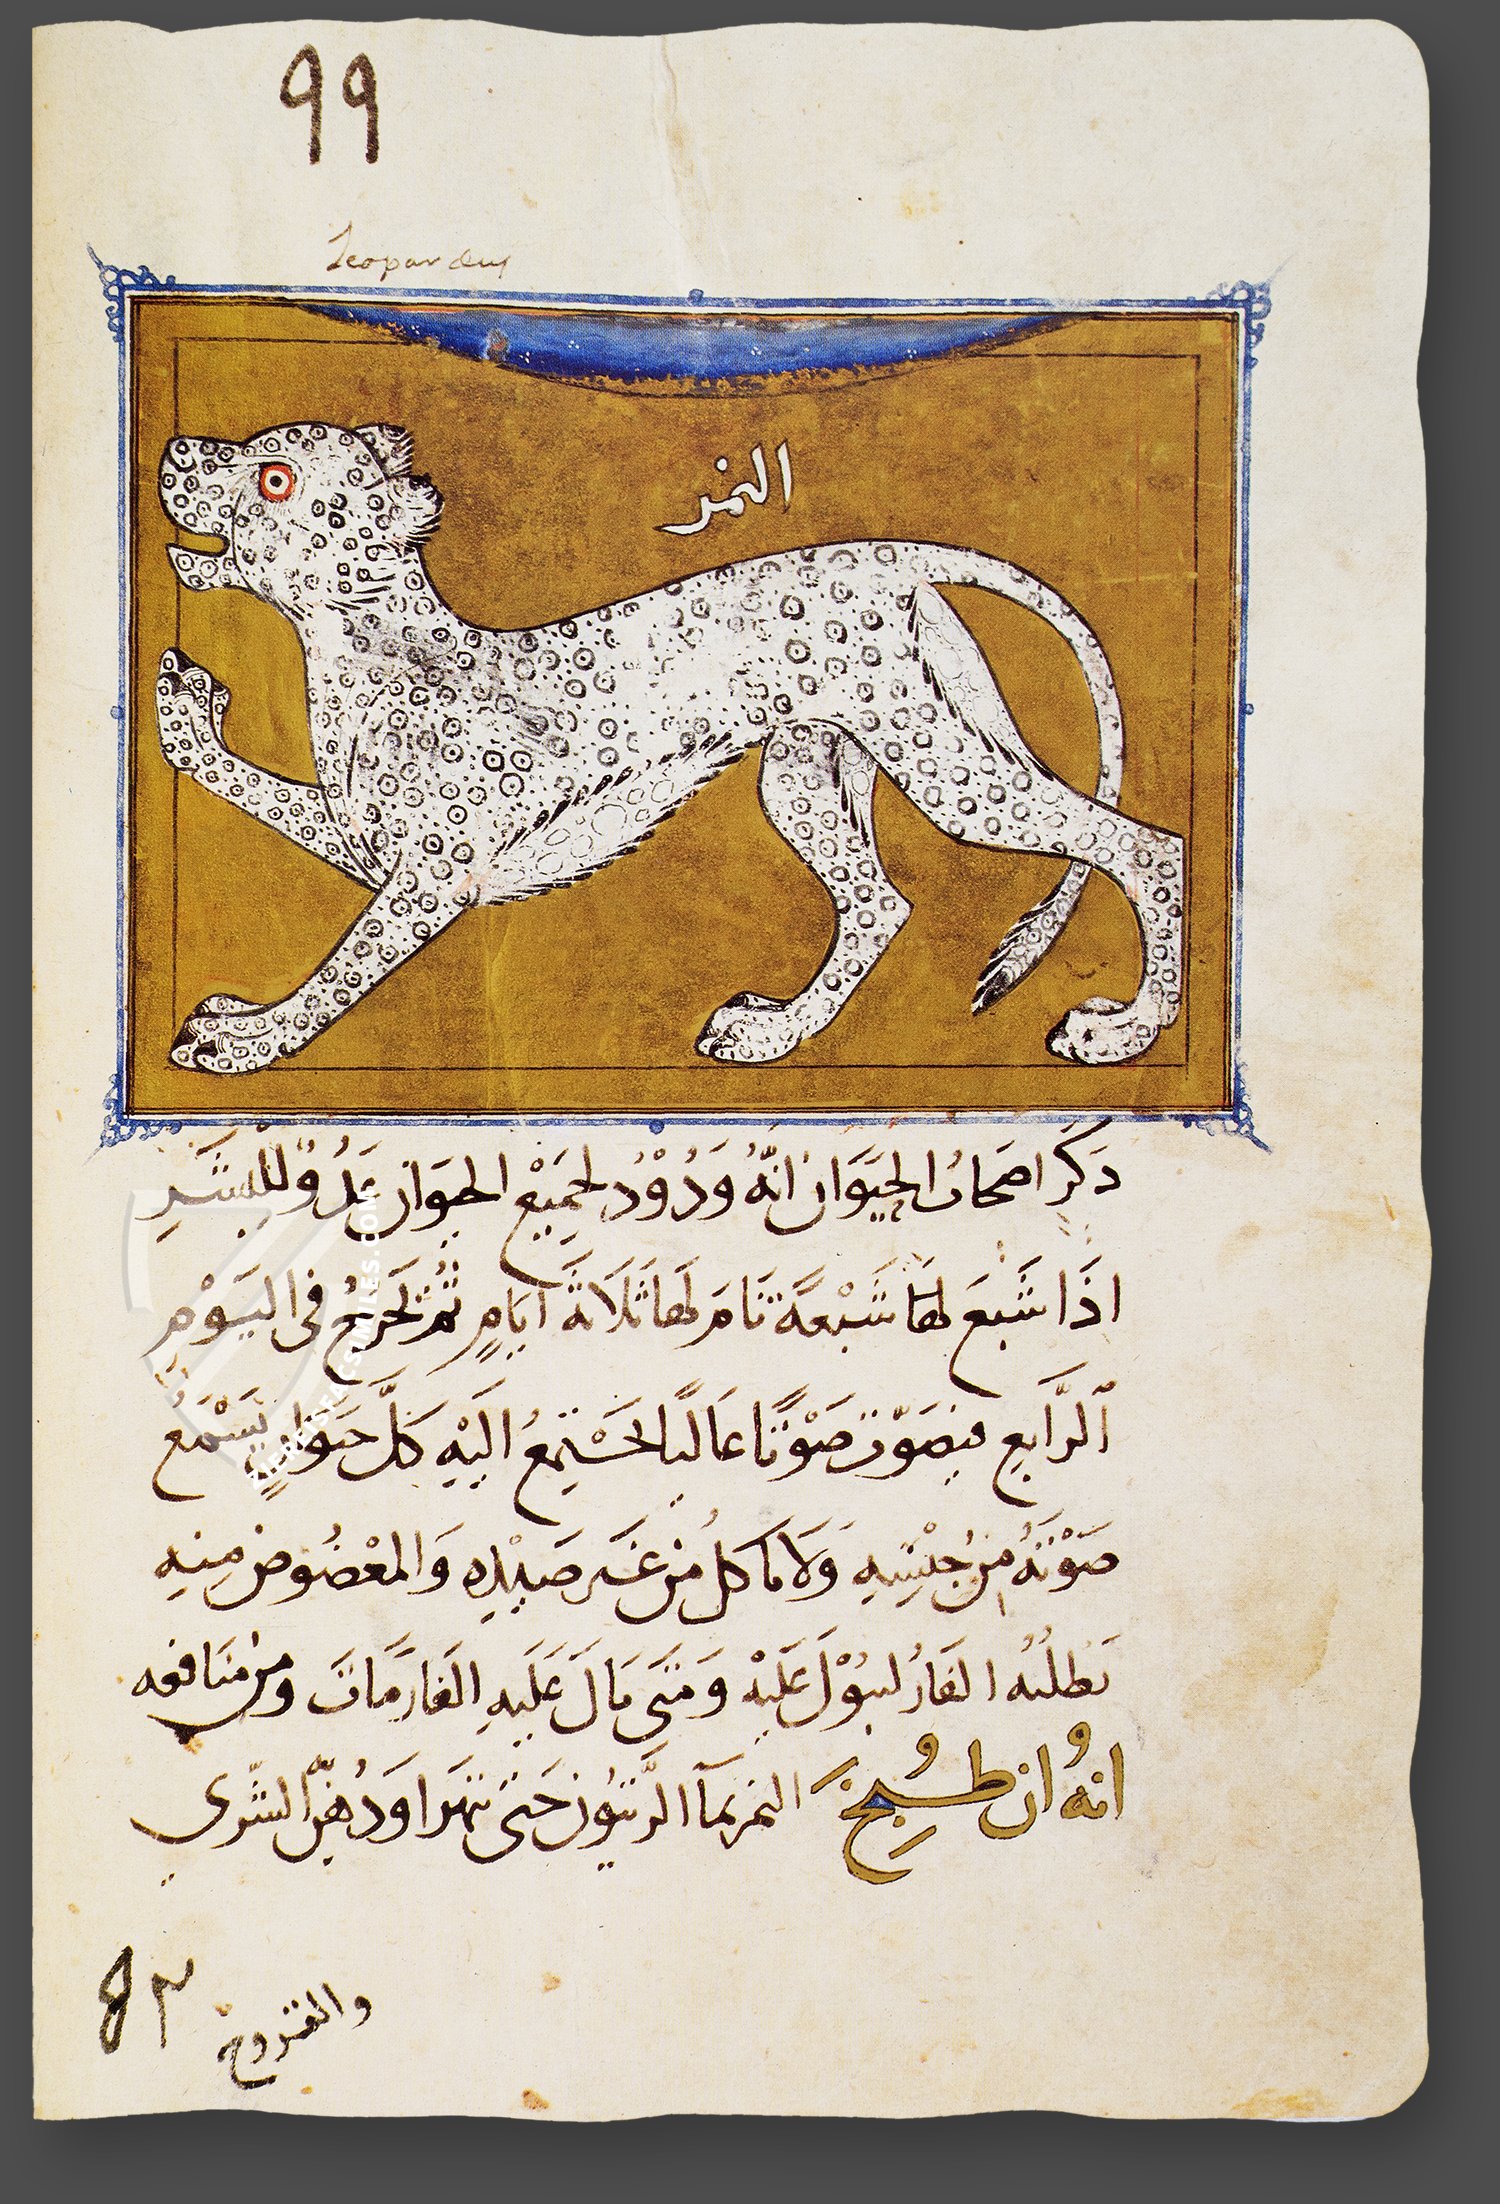 99
Leopardus
النمر
ذكر اصحاب الحيَوَان انّهُ وَدُوْدُ لجَمِيْعِ الحيَوَان عَدُوُّ للبشَرِ
اذَا شَبعَ لهَا شَبْعَةً تنَامَ لهَا ثَلَاثَةَ ايَامٍ ثُمَّ تَخرُجُ فى اليَوْمِ
الرَّابعِ فيصَوّت صَوْتًا عَاليًا تجتَمِعُ اليْهِ كلَّ حيَوَانٍ يَسْمَعُ
صَوْتهُ مِن جِنْسِهِ وَلَا ياكل مِن غير صَيْدِه وَالمعْضُوض مِنه
يَطلُبُه الفَارُ ليبُوْلَ عَليْه وَمَتَى بَالَ عَلَيهِ الفَار مَاتَ ومِن منَافعه
انهُ ان طُبِخَ النمر بمآ الزَّيتُون حَتى يتهَرا وَدُهِنَ الشّرى
والقروح
٨٣
ZIEREISFACSIMILES.COM